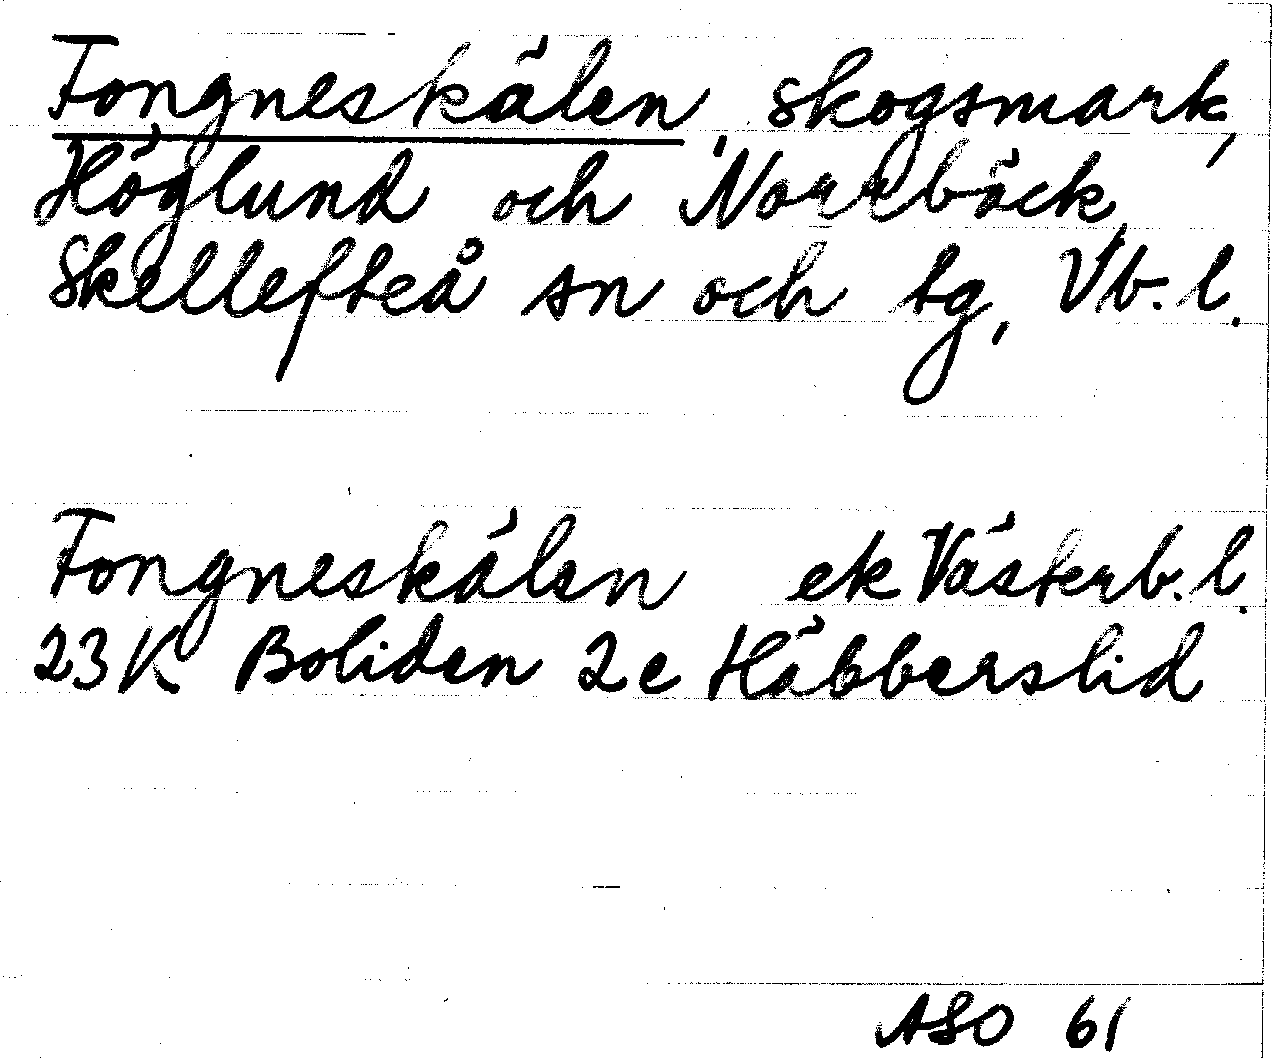 Fongneskälen, skogsmark,
Höglund och Norrbäck,
Skellefteå sn och tg, Vb. l.
Fongneskälen ek Västerb. l.
23K Boliden 2e Häbberslid
ASO 61